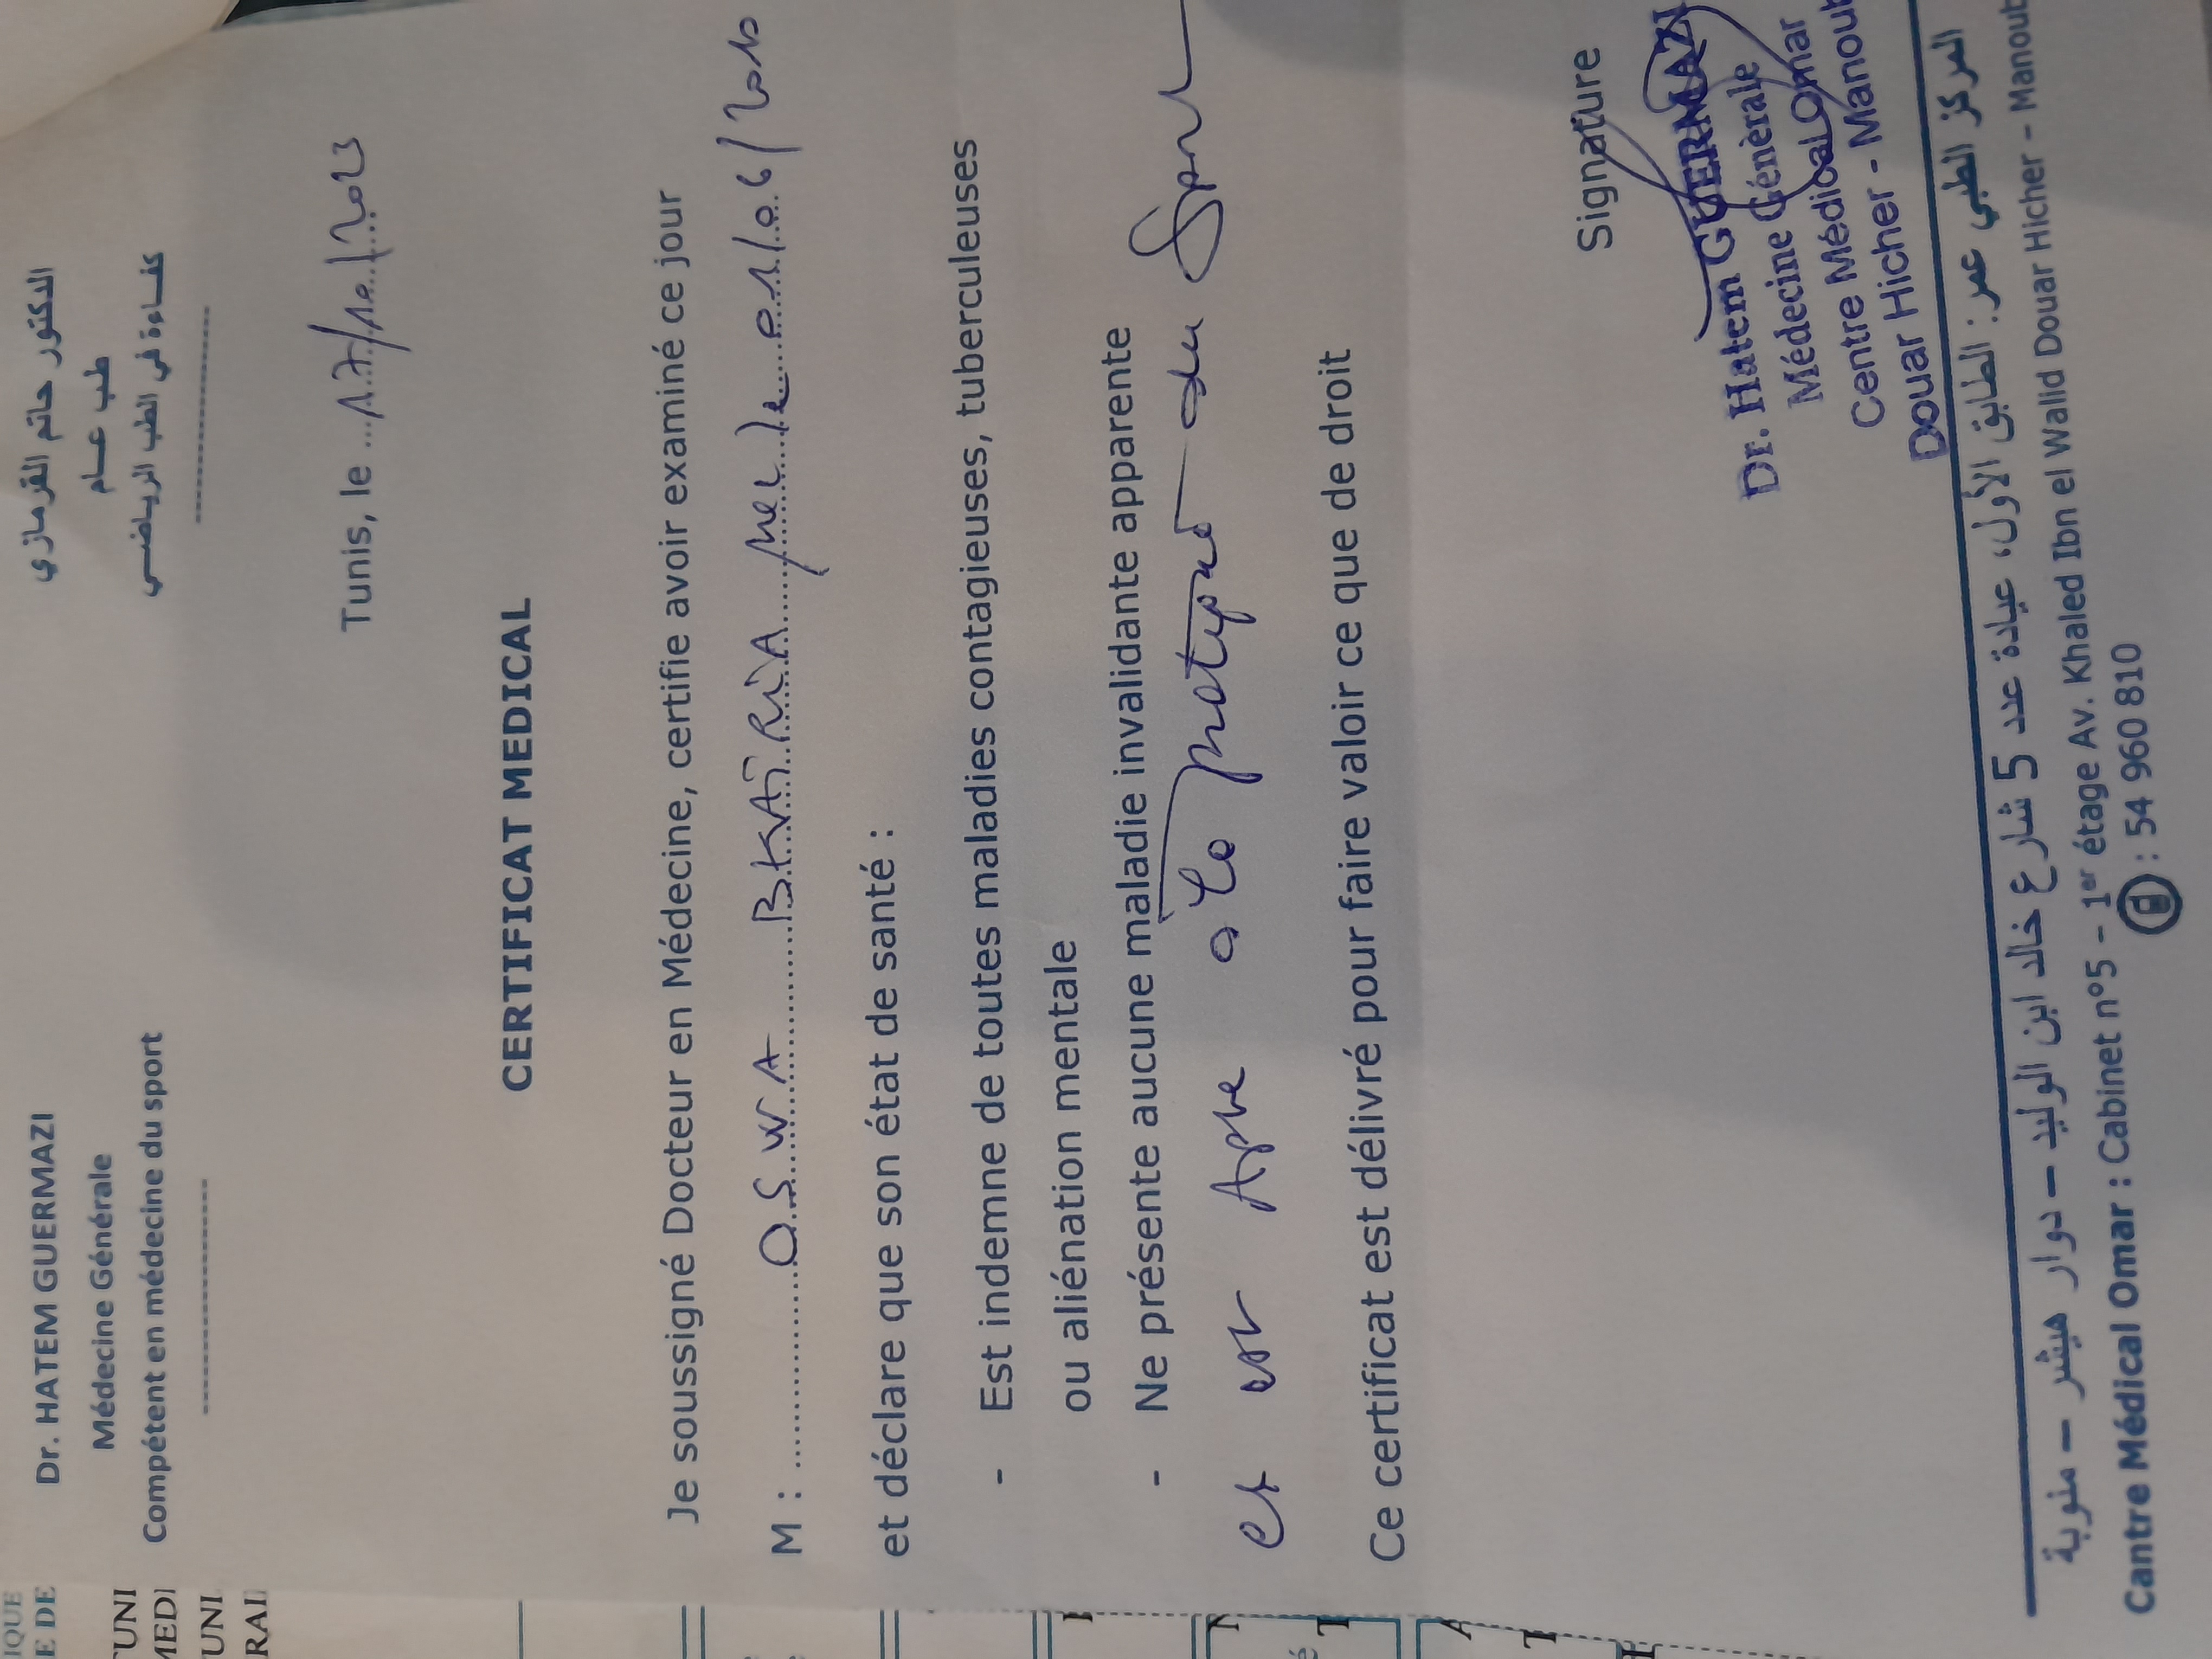 Dr. HATEM GUERMAZI
Médecine Générale
Compétent en médecine du sport
الدكتور حاتم القرمازي
طب عـــام
كفـــاءة في الطب الرياضـــي
Tunis, le ...17/10/2023
CERTIFICAT MEDICAL
Je soussigné Docteur en Médecine, certifie avoir examiné ce jour
M : ............ OSWA ...... BKAIRIA ...... née le 01/06/2010
et déclare que son état de santé :
- Est indemne de toutes maladies contagieuses, tuberculeuses
ou aliénation mentale
- Ne présente aucune maladie invalidante apparente
et est Apte à la pratique du Sport
Ce certificat est délivré pour faire valoir ce que de droit
Signature
Dr. Hatem GUERMAZI
Médecine Générale
Centre Médical Omar
Douar Hicher - Manoub
المركز الطبي عمر : الطابق الأول، عيادة عدد 5 شارع خالد ابن الوليد – دوار هيشر – منوبة
Cantre Médical Omar : Cabinet n°5 – 1er étage Av. Khaled Ibn el Walid Douar Hicher – Manoub
: 54 960 810
IQUE
E DE
UNI
MEDI
UNI
RAI